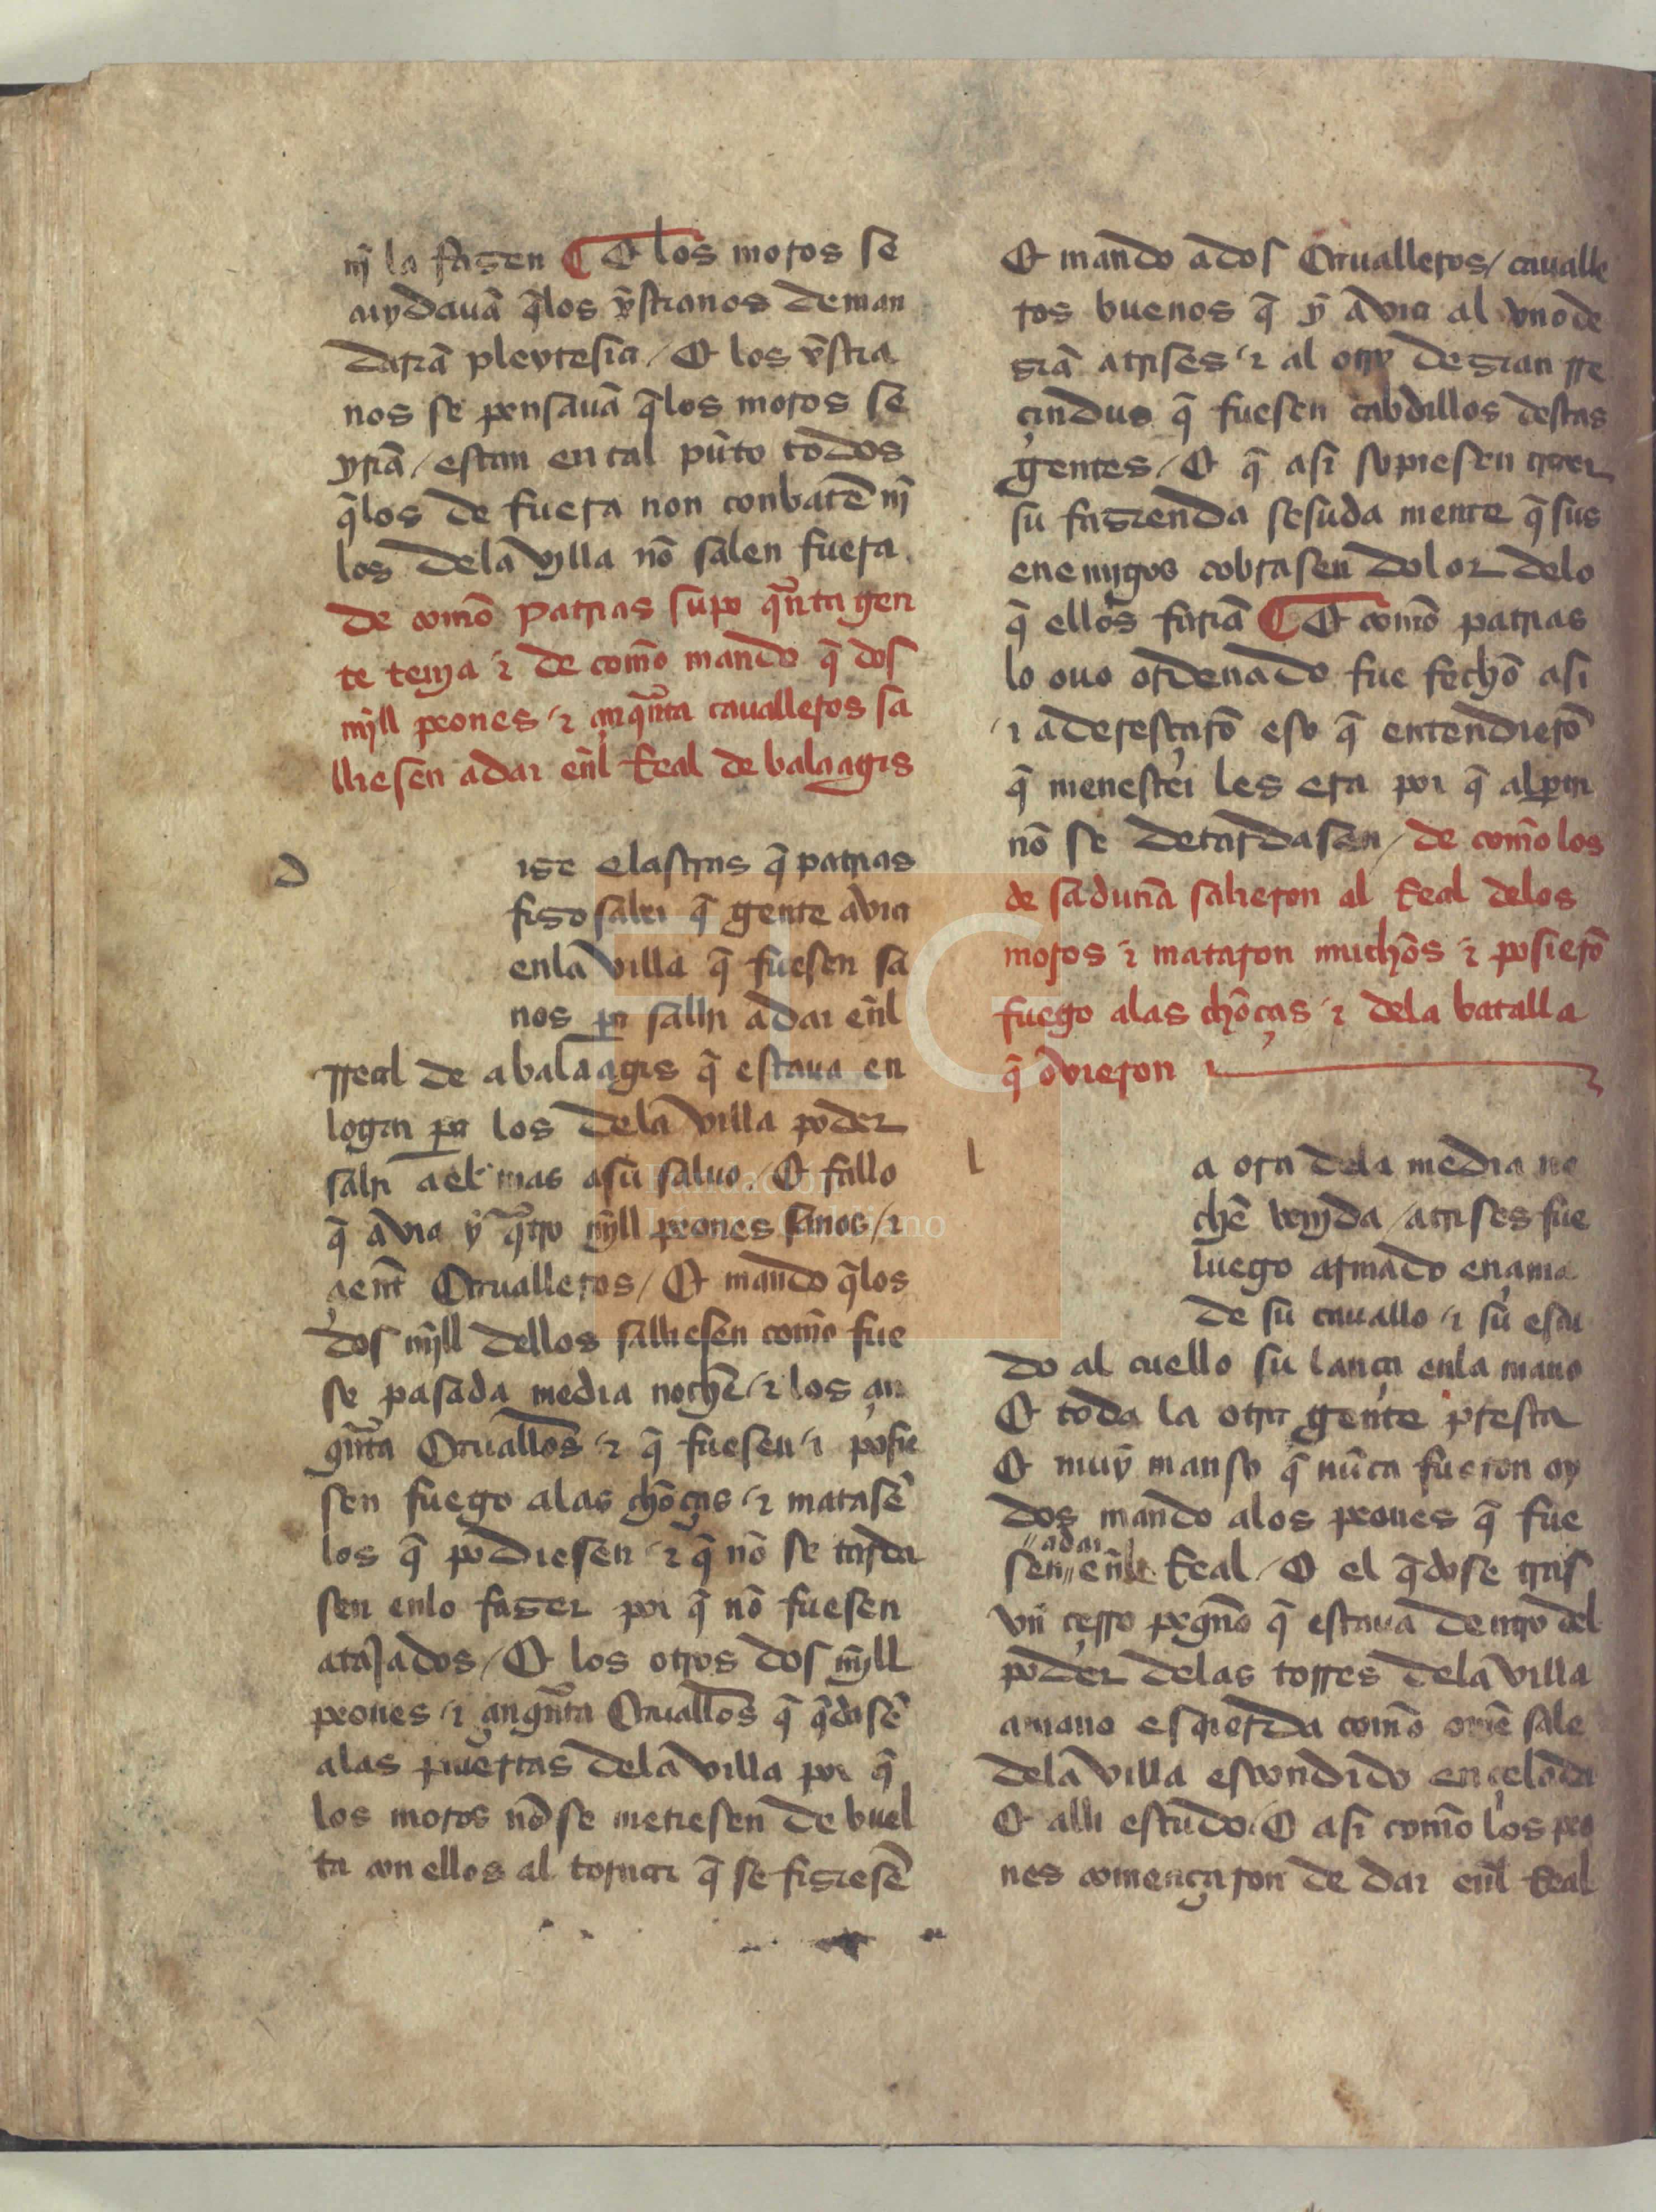 nj̃ la fazen ¶ Et los moros se
cuydauã q̃los xp̃stianos deman
dariã pleytesia / Et los xp̃stia
nos se pensauã q̃los moros se
yriã / estan en tal pũto todos
q̃los de fuera non conbatẽ nj̃
los dela villa nõ salen fuera.
de comõ patrias supo quãnta gen
te tenja ⁊ de comõ mando q̃ dos
mjll peones ⁊ çinquẽnta caualleros sa
lliesen a dar eñl Real de balaagis
d
ize elastras q̃ patrias
fizo saber q̃ gente avia
enla villa q̃ fuesen sa
nos pa sallir a dar eñl
rreal de abalaagis q̃ estaua en
logar pa los dela villa poder
salir a el mas asu saluo. Et fallo
q̃ avia ỹ quãtro mjll peones sanos / ⁊
çient Caualleros / Et mando q̃los
dos mjll dellos salliesen comõ fue
se pasada media nochẽ / ⁊ los çin
quẽnta Cauallõs ⁊ q̃ fuesen ⁊ posie
sen fuego alas chõças ⁊ matasẽ
los q̃ podiesen ⁊ q̃ nõ se tarda
sen enlo fazer por q̃ nõ fuesen
atajados / Et los otros dos mjll
peones ⁊ çinquẽnta Cauallõs q̃ q̃dasẽ
alas puertas dela villa por q̃
los moros nõ se metiesen de buel
ta con ellos al tornar q̃ se fiziesẽ
Et mando a dos Caualleros / caualle
ros buenos q̃ ỹ avia al vno de
zian atrises ⁊ al otro dezian rre
çinduo q̃ fuesen cabdillos destas
gentes / Et q̃ asi sopiesen traer
su fazienda sesuda mente q̃ sus
enemjgos cobrasen dolor delo
q̃ ellos fariã ¶ Et comõ patrias
lo ouo ordenado fue fechõ asi
⁊ aderesçarõ eso q̃ entendierõ
q̃ menester les era por q̃ alpar
nõ se detardasen / de comõ los
de saduria salieron al Real delos
moros ⁊ mataron muchõs ⁊ posierõ
fuego alas chõças ⁊ dela batalla
q̃ ovieron
l
a ora dela media no
chẽ venjda / atrises fue
luego armado ençima
de su cauallo ⁊ su escu
do al cuello su lança enla mano
Et toda la otra gente presta
Et muỹ manso q̃ nũca fueron oy
dos mando alos peones q̃ fue
sen //a dar// eñl Real / Et el q̃dose tras
vñ cerro peq̃ño q̃ estaua dentro del
poder delas torres dela villa
amano esquierda comõ omẽ sale
dela villa escondido en çelada
Et alli estudo. Et asi comõ los peo
nes comẽnçaron de dar eñl Real